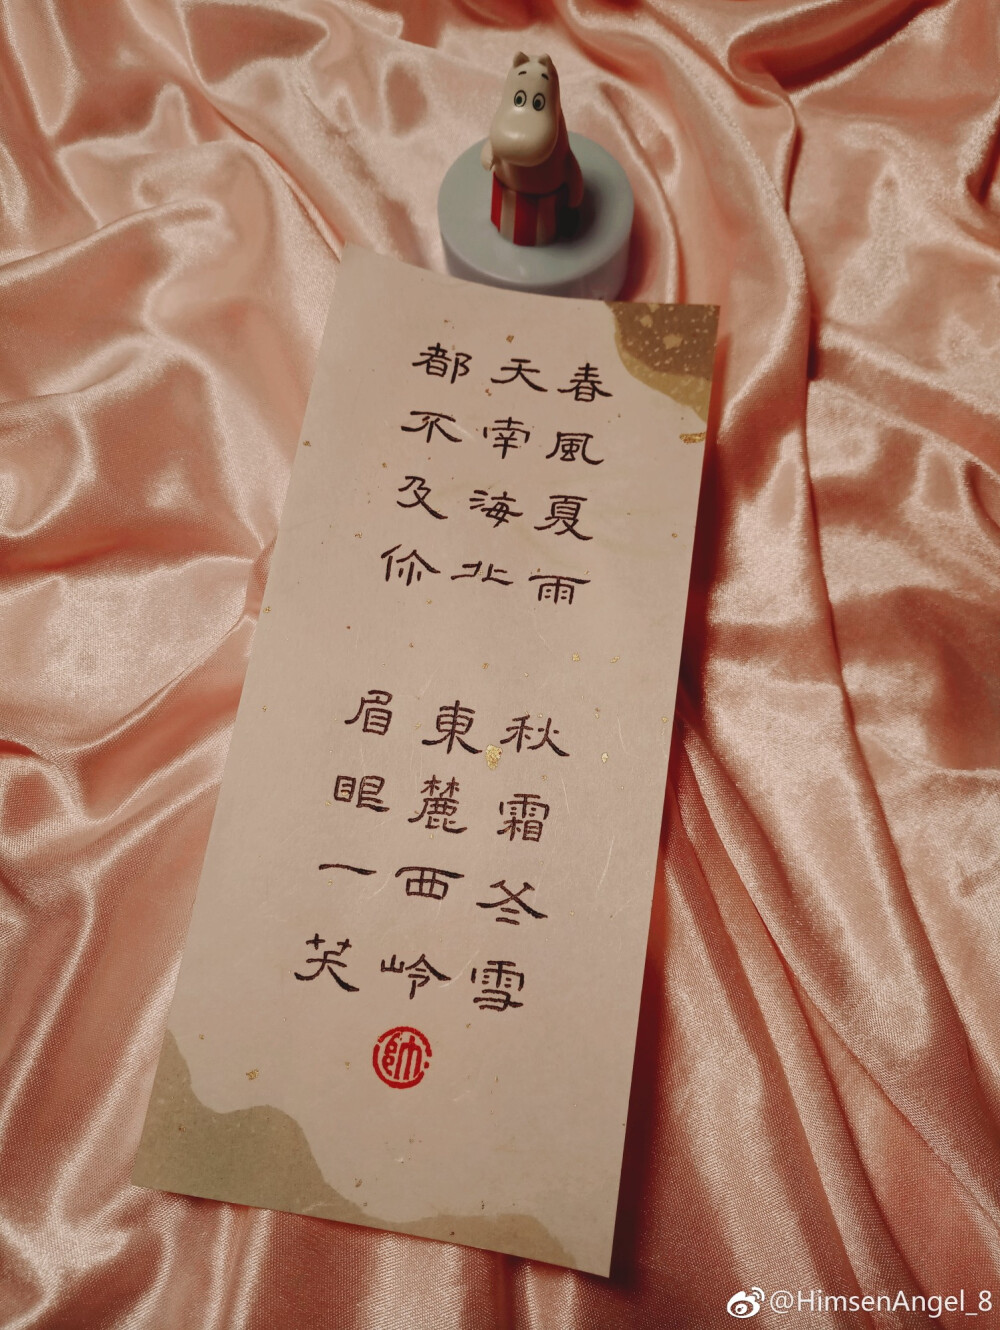 春風夏雨 秋霜冬雪
天南海北 東麓西岭
都不及你 眉眼一笑
帥
@HimsenAngel_8